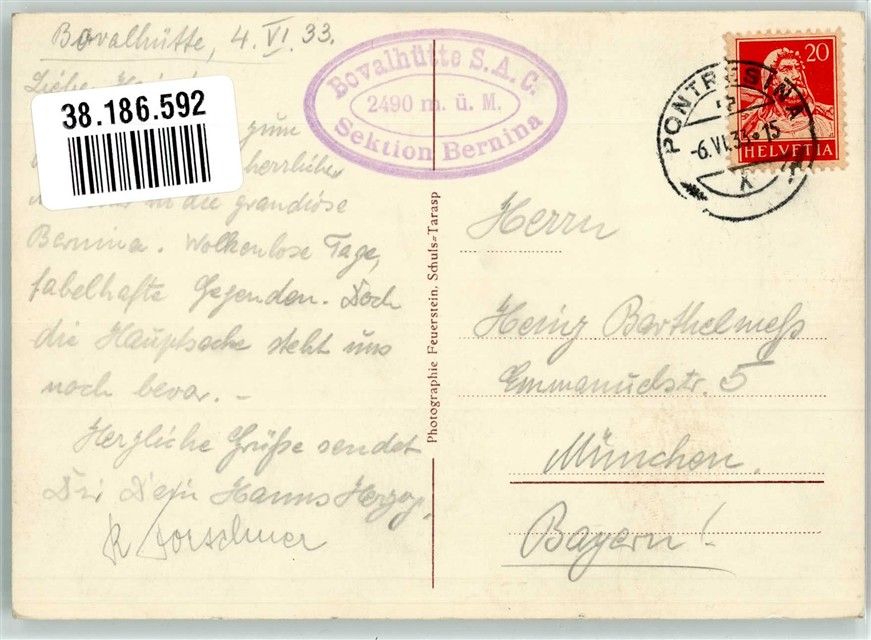 Bovalhütte, 4. VI. 33.
Liebe
38.186.592
zum
herrliche
in die grandiose
Bernina. Wolkenlose Tage,
fabelhafte Gegenden. Doch
die Hauptsache steht uns
noch bevor. –
Herzliche Grüße sendet
Dir Dein Hanns Herzog.
Bovalhütte S.A.C.
2490 m. ü. M.
Sektion Bernina
Photographie Feuerstein, Schuls=Tarasp
20
HELVETIA
PONTRESINA
-6.VI.33-15
Herrn
Heinz Barthelmeß
Emmanuelstr. 5
München.
Bayern!